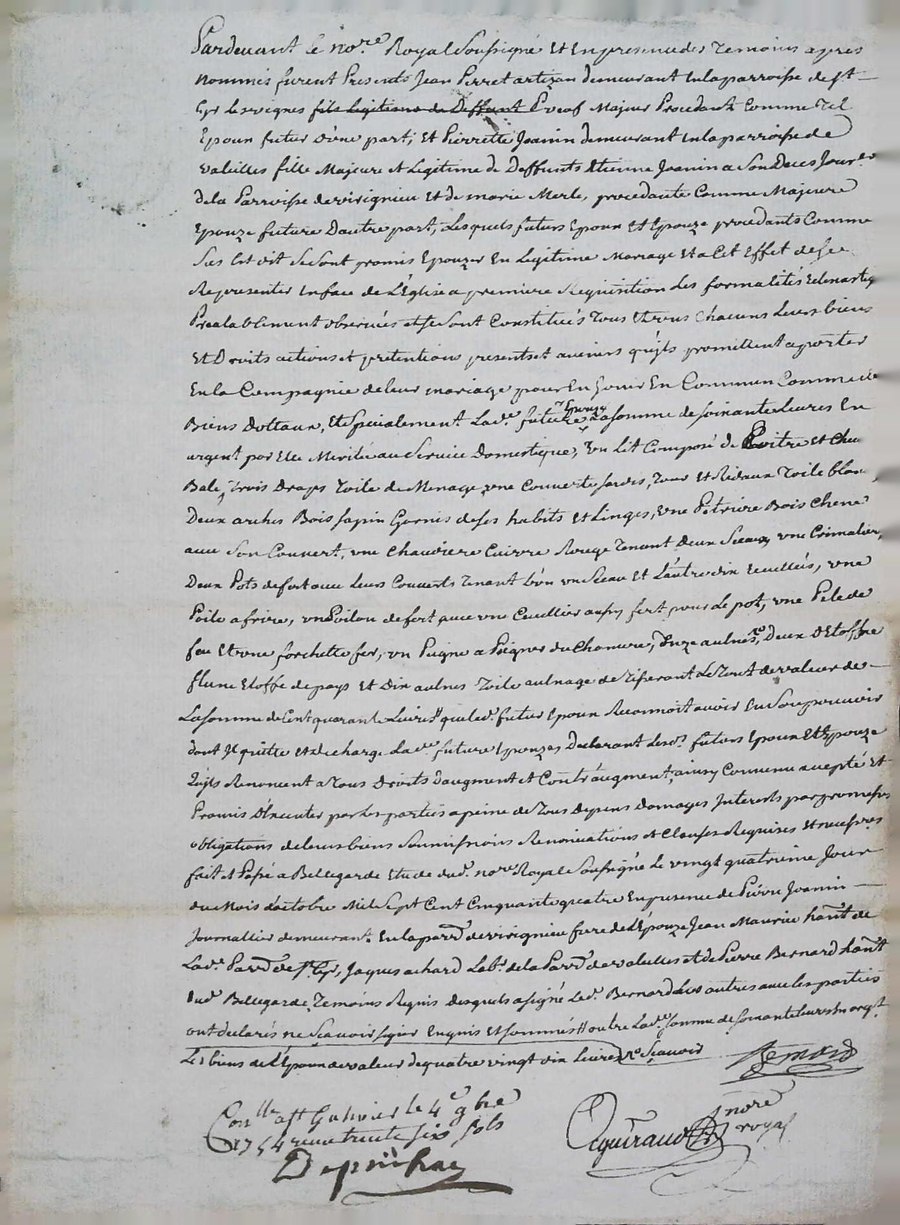 Pardevant le nore Royal Soussigné Et En presence des Temoins apres
nommés furent Presents Jean Perret artizan demeurant En la parroisse de St
Cyr les vignes fils Legitime de Deffunt veuf Majeur Procedant Comme Tel
Epoux futur d'une part, et Pierrette Joanin demeurant En la parroisse de
valeilles fille Majeure et Legitime de Deffunts Etienne Joanin a Son Deces Jour
de la Parroisse de virignieu et de marie Merle, procedante Comme Majeure
Epouze future Dautre part, Lesquels futurs Epoux et Epouze procedants Comme
Sus Est dit Se Sont promis Epouzer En Legitime Mariage Et a Cet Effet de Se
Representer En face de L'Eglise a premiere Requisition Les formalités
Prealablement observées et se Sont Constitués Tous Chacuns Leurs biens
Et Droits actions et pretentions presents et avenirs quils promettent aporter
En la Compagnie de leur mariage pour En Jouir En Commun Comme
Biens Dottaux, et Specialement Lade future Epouze La Somme de Soixante Livres En
argent par Elle Meritée au Service Domestique, Un Lit Composé de Coitre et
Bale, Trois Draps Toile de Menage, une Couverte, Tour et Rideaux Toile
Deux arches Bois Sapin Garnies de Ses habits Et Linges, Une Petriere Bois Chene
avec Son Couvert, une Chaudiere Cuivre Rouge Tenant Deux Seaux, une Cremalier,
Deux Pots de fert avec Leurs Couverts Tenant L'un un Seau et L'autre dix Ecuelles, une
Poile a frire, un Poilon de fert avec une Ceuillier aussy fert pour Le pot, une Pele de
feu Et une forchette fer, un Pugne a Piegner du Chanvre, Onze aulnes, Deux d'Etoffe
flune Etoffe de pays et Dix aulnes Toile aulnage de Le Tout de valeur de
La Somme de Cent quarante Livres que led. futur Epoux Reconnoit avoir En Son pouvoir
dont Il quitte et decharge Lade future Epouze, Declarant Lesd. futurs Epoux Et Epouze
quils Renoncent a Tous Droits d'augment et Contraugment, ainsy Convenu accepté et
Promis d'Executer par Les parties a peine de Tous depens domages Interests par promesses
obligations de leurs biens Soumissions Renonciations et Clauses Requises et necessres
fait et Passé a Bellegarde Etude dud. nore Royal Soussigné Le vingt quatrieme Jour
du Mois d'octobre Mil Sept Cent Cinquante quatre En presence de Pierre Joanin
Journallier demeurant En la parrse de virignieu frere de L'Epouze Jean Maurice hant de
Lade Parrse de St Cyr, Jaques achard Labr de la Parrse de valeilles et de Pierre Bernard hant
dud. Bellegarde Temoins Requis desquels a signé Led. Bernard Les autres avec les parties
ont declarés ne Scavoir signer Enquis et Sommés outre Lade Somme de Soixante Livres En argt
Les biens de L'Epoux de valeur de quatre vingt dix Livres Scavoir
Bernard
Conllé a St Galmier le 4e 9bre
1754 recu trente six sols
nore
royal